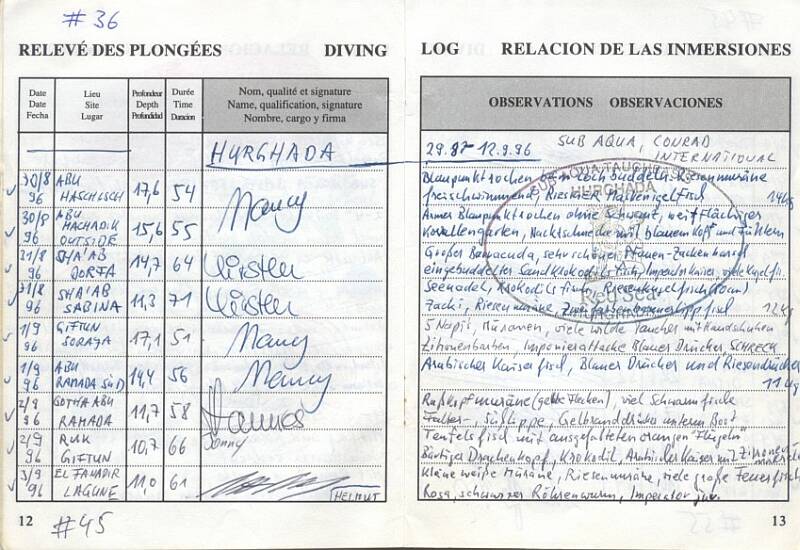 # 36
RELEVÉ DES PLONGÉES DIVING
Date Date Fecha
Lieu Site Lugar
Profondeur Depth Profondidad
Durée Time Duracion
Nom, qualité et signature
Name, qualification, signature
Nombre, cargo y firma
HURGHADA
30/8 96 ABU HASCHISCH 17,6 54 Nancy
30/8 96 ABU MACHADIK OUTSIDE 15,6 55
31/8 96 SHA'AB DORFA 14,7 64 Kirsten
31/8 96 SHA'AB SABINA 11,3 71 Kirsten
1/9 96 GIFTUN SORAYA 17,1 51 Nancy
1/9 96 ABU RAMADA SÜD 19,4 56 Nancy
2/9 96 GOTHA ABU RAMADA 11,7 58 Hannes
2/9 96 RUK GIFTUN 10,7 66 Conny
3/9 96 EL FANADIR LAGUNE 11,0 61 HELMUT
12 #45
LOG RELACION DE LAS INMERSIONES
OBSERVATIONS OBSERVACIONES
12.9.96 SUB AQUA, CONRAD
INTERNATIONAL
Blaupunktrochen beim Loch buddeln, Riesenmuräne
freischwimmend, RIESIGER Maskenigelfisch 14kg
Armer Blaupunktrochen ohne Schwanz, weitflächiger
Korallengarten, Nacktschnecke mit blauem Kopf und Fühlern
Großer Barracuda, sehr schöner Pfauen-Zackenbarsch
eingebuddelter Sandkrokodilsfisch, Imperatorkaiser, viele Kugelfi.
Seenadel, Krokodilsfisch, Riesenkugelfisch
Zacki, Riesenmuräne 12kg
5 Napis, Muränen, viele wilde Taucher mit Handschuhen
Zitronenbarben, Imponierattacke Blauer Drücker, SCHRECK
Arabischer Kaiserfisch, Blauer Drücker und Riesendrücker
11kg
Rußkopfmuräne (gelbe Flecken), viel Schwarmfische
Falter-, Süßlippe, Gelbranddrücker unterm Boot
Teufelsfisch mit ausgefalteten orangen "Flügeln"
Bärtiger Drachenkopf, Krokodil, Arabischer Kaiser mit
Kleine weiße Muräne, Riesenmuräne, viele große Feuerfische
Rosa, schwarzer Röhrenwurm, Imperator juv.
SUB AQUA TAUCH
HURGHADA
Red Sea
HURGHADA
13